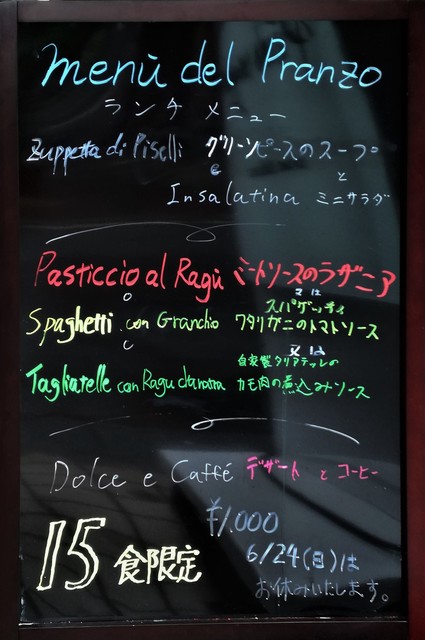 menù del Pranzo
ランチ メニュー
Zuppetta di Piselli グリーンピースのスープ
e と
Insalatina ミニサラダ
Pasticcio al Ragù ミートソースのラザニア
o または
スパゲッティ
Spaghetti con Granchio ワタリガニのトマトソース
o 又は
自家製タリアテッレの
Tagliatelle con Ragu d'anatra カモ肉の煮込みソース
Dolce e Caffé デザート と コーヒー
¥1.000
15 食限定
6/24(日)は
お休みいたします。